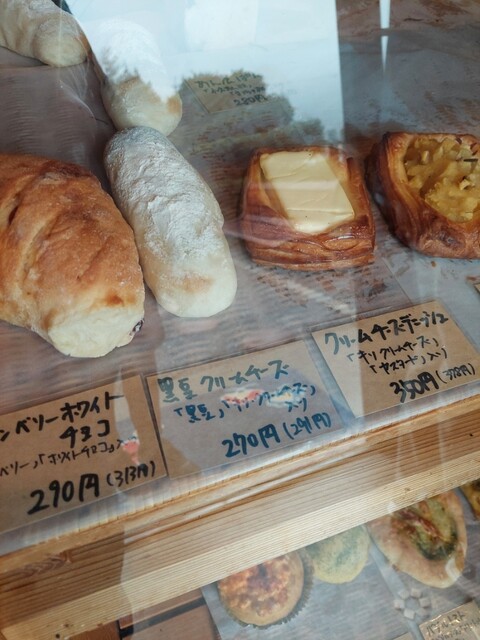 280円
ンベリーホワイト
チョコ
ベリー」「ホワイトチョコ」入り
290円(313円)
黒豆クリームチーズ
「黒豆」「クリームチーズ」
入り
270円(291円)
クリームチーズデニッシュ
「キリクリームチーズ」
「カスタード」入り
350円(378円)